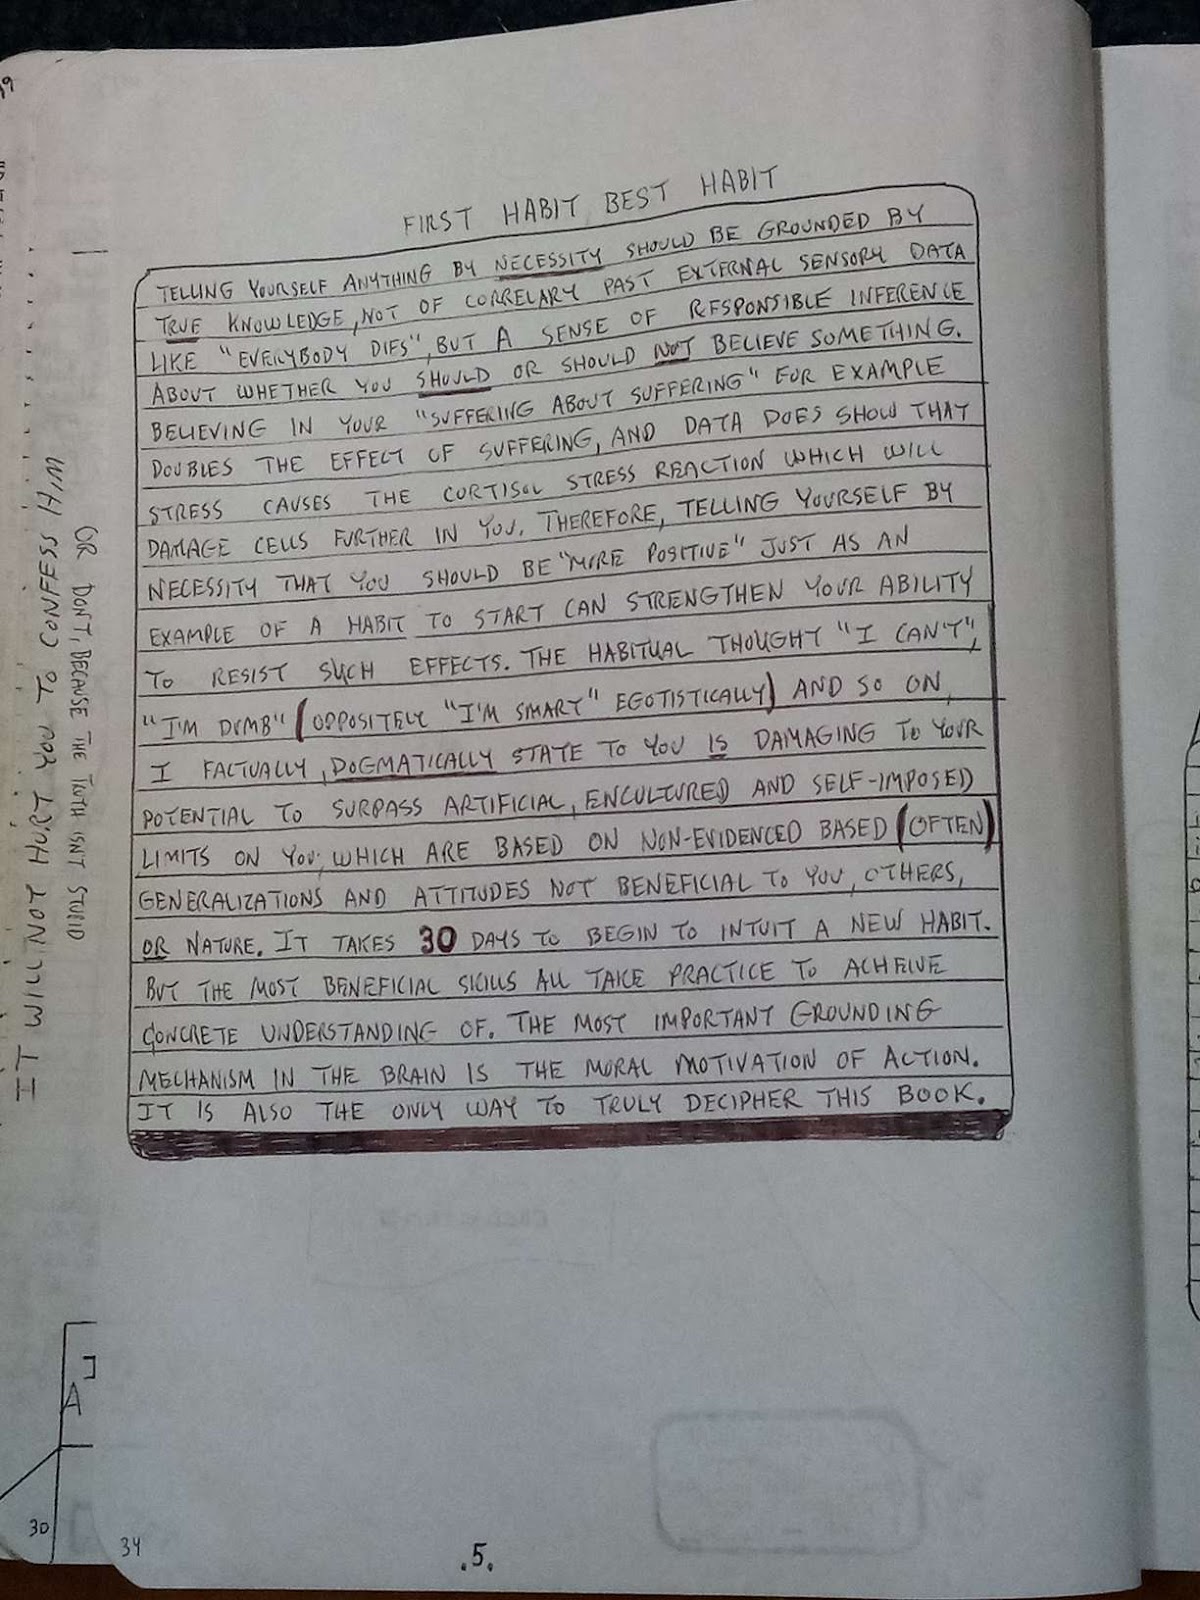 FIRST HABIT BEST HABIT
TELLING YOURSELF ANYTHING BY NECESSITY SHOULD BE GROUNDED BY
TRUE KNOWLEDGE, NOT OF CORRELARY PAST EXTERNAL SENSORY DATA
LIKE "EVERYBODY DIES", BUT A SENSE OF RESPONSIBLE INFERENCE
ABOUT WHETHER YOU SHOULD OR SHOULD NOT BELIEVE SOMETHING.
BELIEVING IN YOUR "SUFFERING ABOUT SUFFERING" FOR EXAMPLE
DOUBLES THE EFFECT OF SUFFERING, AND DATA DOES SHOW THAT
STRESS CAUSES THE CORTISOL STRESS REACTION WHICH WILL
DAMAGE CELLS FURTHER IN YOU. THEREFORE, TELLING YOURSELF BY
NECESSITY THAT YOU SHOULD BE "MORE POSITIVE" JUST AS AN
EXAMPLE OF A HABIT TO START CAN STRENGTHEN YOUR ABILITY
TO RESIST SUCH EFFECTS. THE HABITUAL THOUGHT "I CAN'T",
"I'M DUMB" (OPPOSITELY "I'M SMART" EGOTISTICALLY) AND SO ON,
I FACTUALLY, DOGMATICALLY STATE TO YOU IS DAMAGING TO YOUR
POTENTIAL TO SURPASS ARTIFICIAL, ENCULTURED AND SELF-IMPOSED
LIMITS ON YOU; WHICH ARE BASED ON NON-EVIDENCED BASED (OFTEN)
GENERALIZATIONS AND ATTITUDES NOT BENEFICIAL TO YOU, OTHERS,
OR NATURE. IT TAKES 30 DAYS TO BEGIN TO INTUIT A NEW HABIT.
BUT THE MOST BENEFICIAL SKILLS ALL TAKE PRACTICE TO ACHEIVE
CONCRETE UNDERSTANDING OF. THE MOST IMPORTANT GROUNDING
MECHANISM IN THE BRAIN IS THE MORAL MOTIVATION OF ACTION.
IT IS ALSO THE ONLY WAY TO TRULY DECIPHER THIS BOOK.
34
.5.
IT WILL NOT HURT YOU TO CONFESS HIM
OR DON'T, BECAUSE THE TUTH ISNT STUPID
A
30